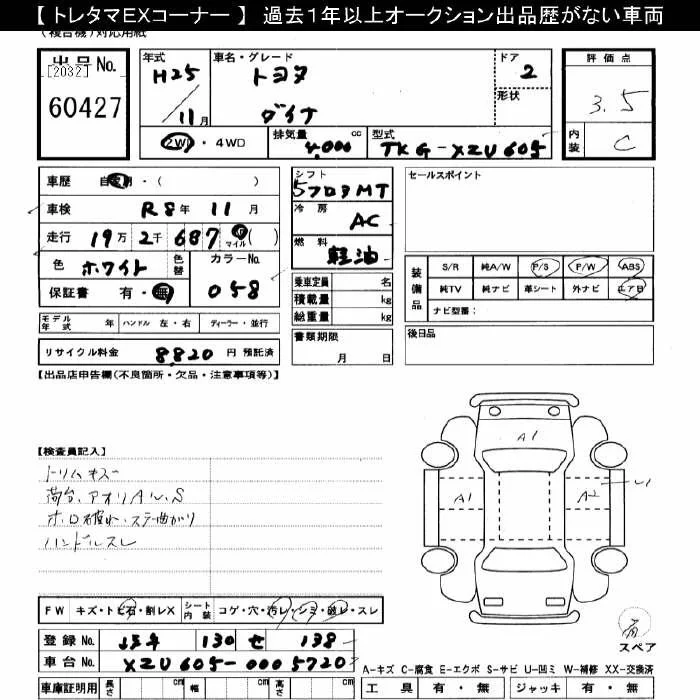 【トレタマEXコーナー】 過去1年以上オークション出品歴がない車両
(複合機)対応用紙
出品No.
[2032]
60427
年式 H25/11月
車名・グレード トヨタ ダイナ
ドア 2
形状
2WD・4WD
排気量 4,000 cc
型式 TKG-XZU605
評価点 3.5
内装 C
車歴 自家・( )
車検 R8年 11月
走行 19万 2千 687 マイル( )
色 ホワイト 色替 カラーNo. 058
保証書 有・無
シフト 5フロアMT
冷房 AC
燃料 軽油
乗車定員 名
積載量 kg
総重量 kg
書類期限
月 日
セールスポイント
装備品 S/R 純A/W P/S P/W ABS
純TV 純ナビ 革シート 外ナビ エアB
ナビ型番:
後日品
モデル年式 年 ハンドル 左・右 ディーラー・並行
リサイクル料金 8,820 円 預託済
【出品店申告欄(不良箇所・欠品・注意事項等)】
【検査員記入】
トリムキズ
荷台、アオリA、U、S
ホロ破れ・ステー曲がり
ハンドルスレ
A1
A1
A2
FW キズ・トビ石・割レX シート内装 コゲ・穴・汚レ・シミ・破レ・スレ
登録No. 130 せ 138
車台No. XZU605-0005720
車庫証明用 長さ cm 幅 cm 高さ cm
有
スペア
A-キズ C-腐食 E-エクボ S-サビ U-凹ミ W-補修 XX-交換済
工具 有・無 ジャッキ 有・無